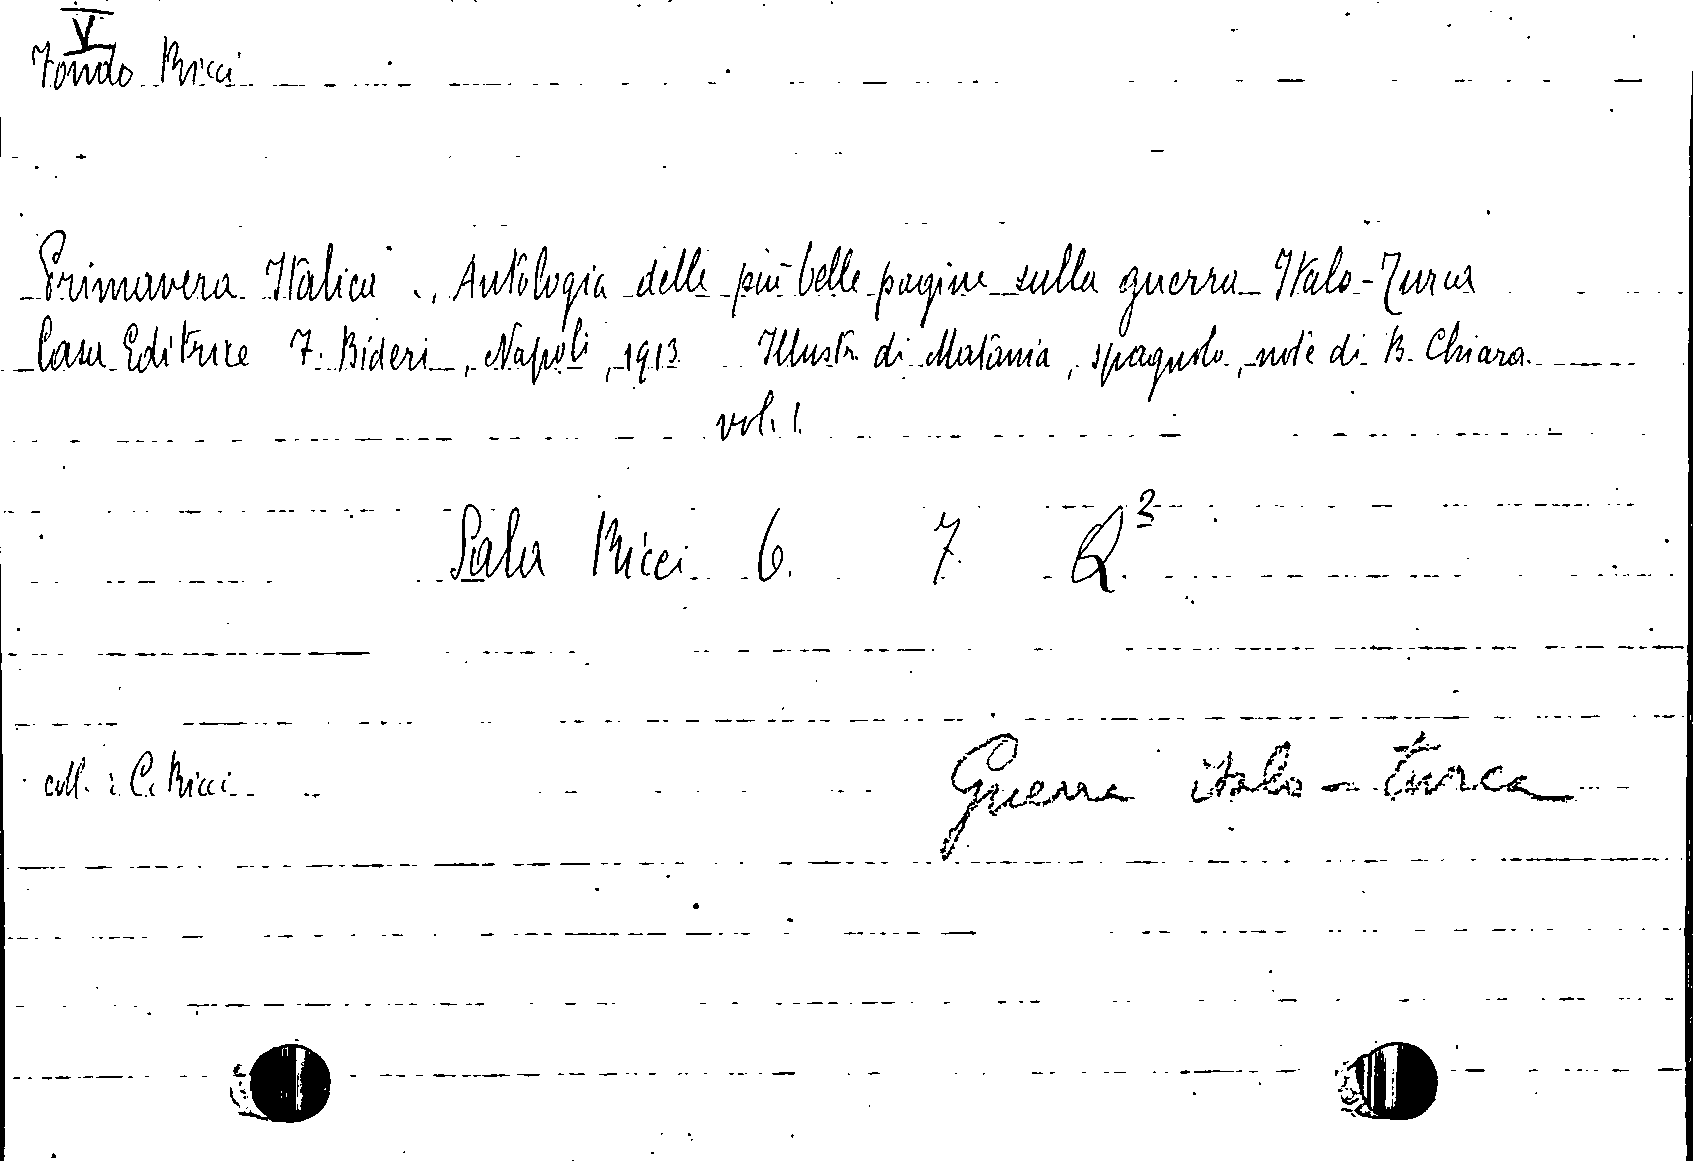 V
Fondo Ricci
Primavera Italica . , Antologia delle più belle pagine sulla guerra Italo-Turca
Casa Editrice F. Bideri , Napoli , 1913 Illustr. di Matania , spagnolo , note di B. Chiara
vol. 1.
Sala Ricci 6. 7. Q³
coll. : C. Ricci
Guerra italo-turca